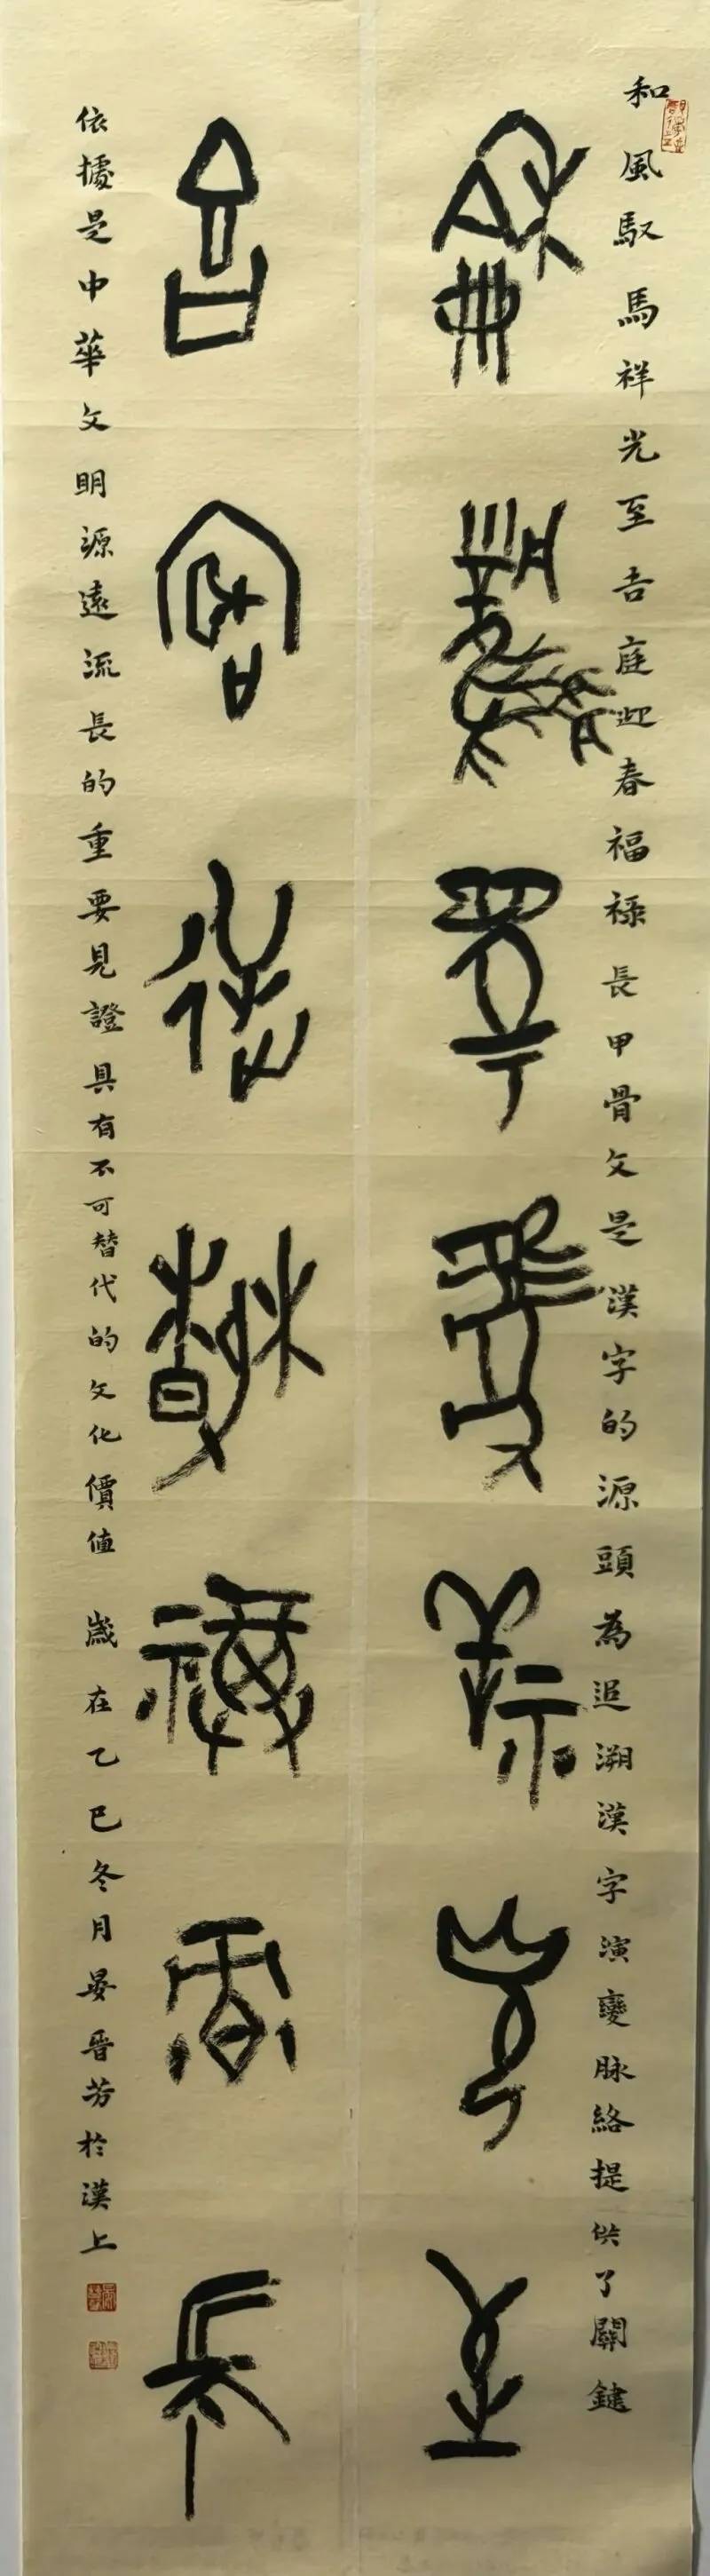 和風馭馬祥光至吉庭迎春福祿長甲骨文是漢字的源頭為追溯漢字演變脉絡提供了關鍵
和風馭馬祥光至
吉庭迎春福祿長
依據是中華文明源遠流長的重要見證具有不可替代的文化價值 歲在乙巳冬月晏晋芳於漢上